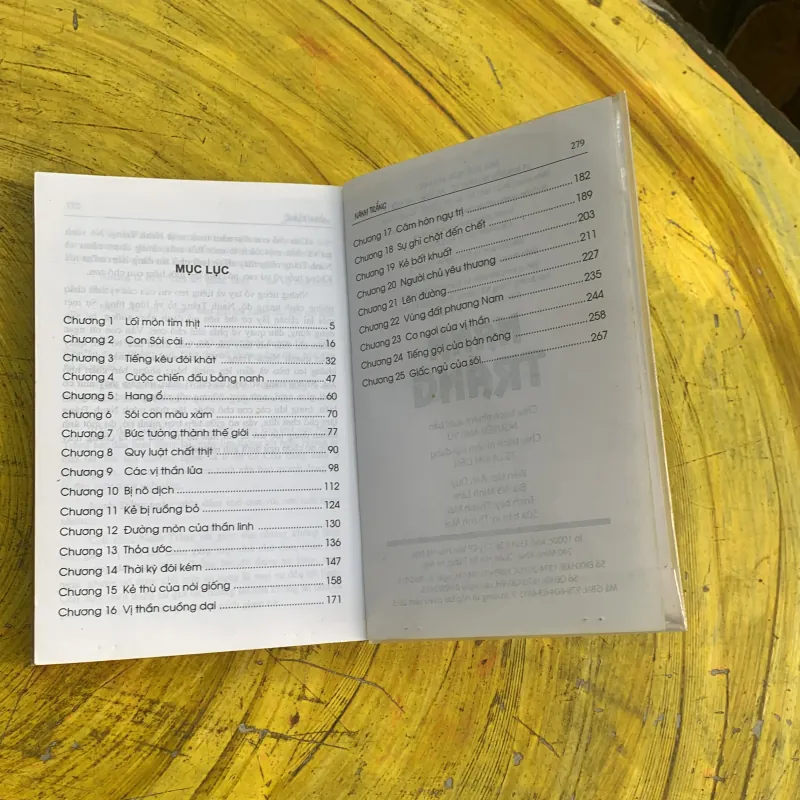 MỤC LỤC
Chương 1 Lối mòn tìm thịt 5
Chương 2 Con Sói cái 16
Chương 3 Tiếng kêu đói khát 32
Chương 4 Cuộc chiến đấu bằng nanh 47
Chương 5 Hang ổ 60
chương 6 Sói con màu xám 70
Chương 7 Bức tường thành thế giới 77
Chương 8 Quy luật chất thịt 90
Chương 9 Các vị thần lửa 98
Chương 10 Bị nô dịch 112
Chương 11 Kẻ bị ruồng bỏ 124
Chương 12 Đường mòn của thần linh 130
Chương 13 Thỏa ước 136
Chương 14 Thời kỳ đói kém 147
Chương 15 Kẻ thù của nòi giống 158
Chương 16 Vị thần cuồng dại 171
NANH TRẮNG 279
Chương 17 Căm hờn ngự trị 182
Chương 18 Sự ghì chặt đến chết 189
Chương 19 Kẻ bất khuất 203
Chương 20 Người chủ yêu thương 211
Chương 21 Lên đường 227
Chương 22 Vùng đất phương Nam 235
Chương 23 Cơ ngơi của vị thần 244
Chương 24 Tiếng gọi của bản năng 258
Chương 25 Giấc ngủ của sói 267